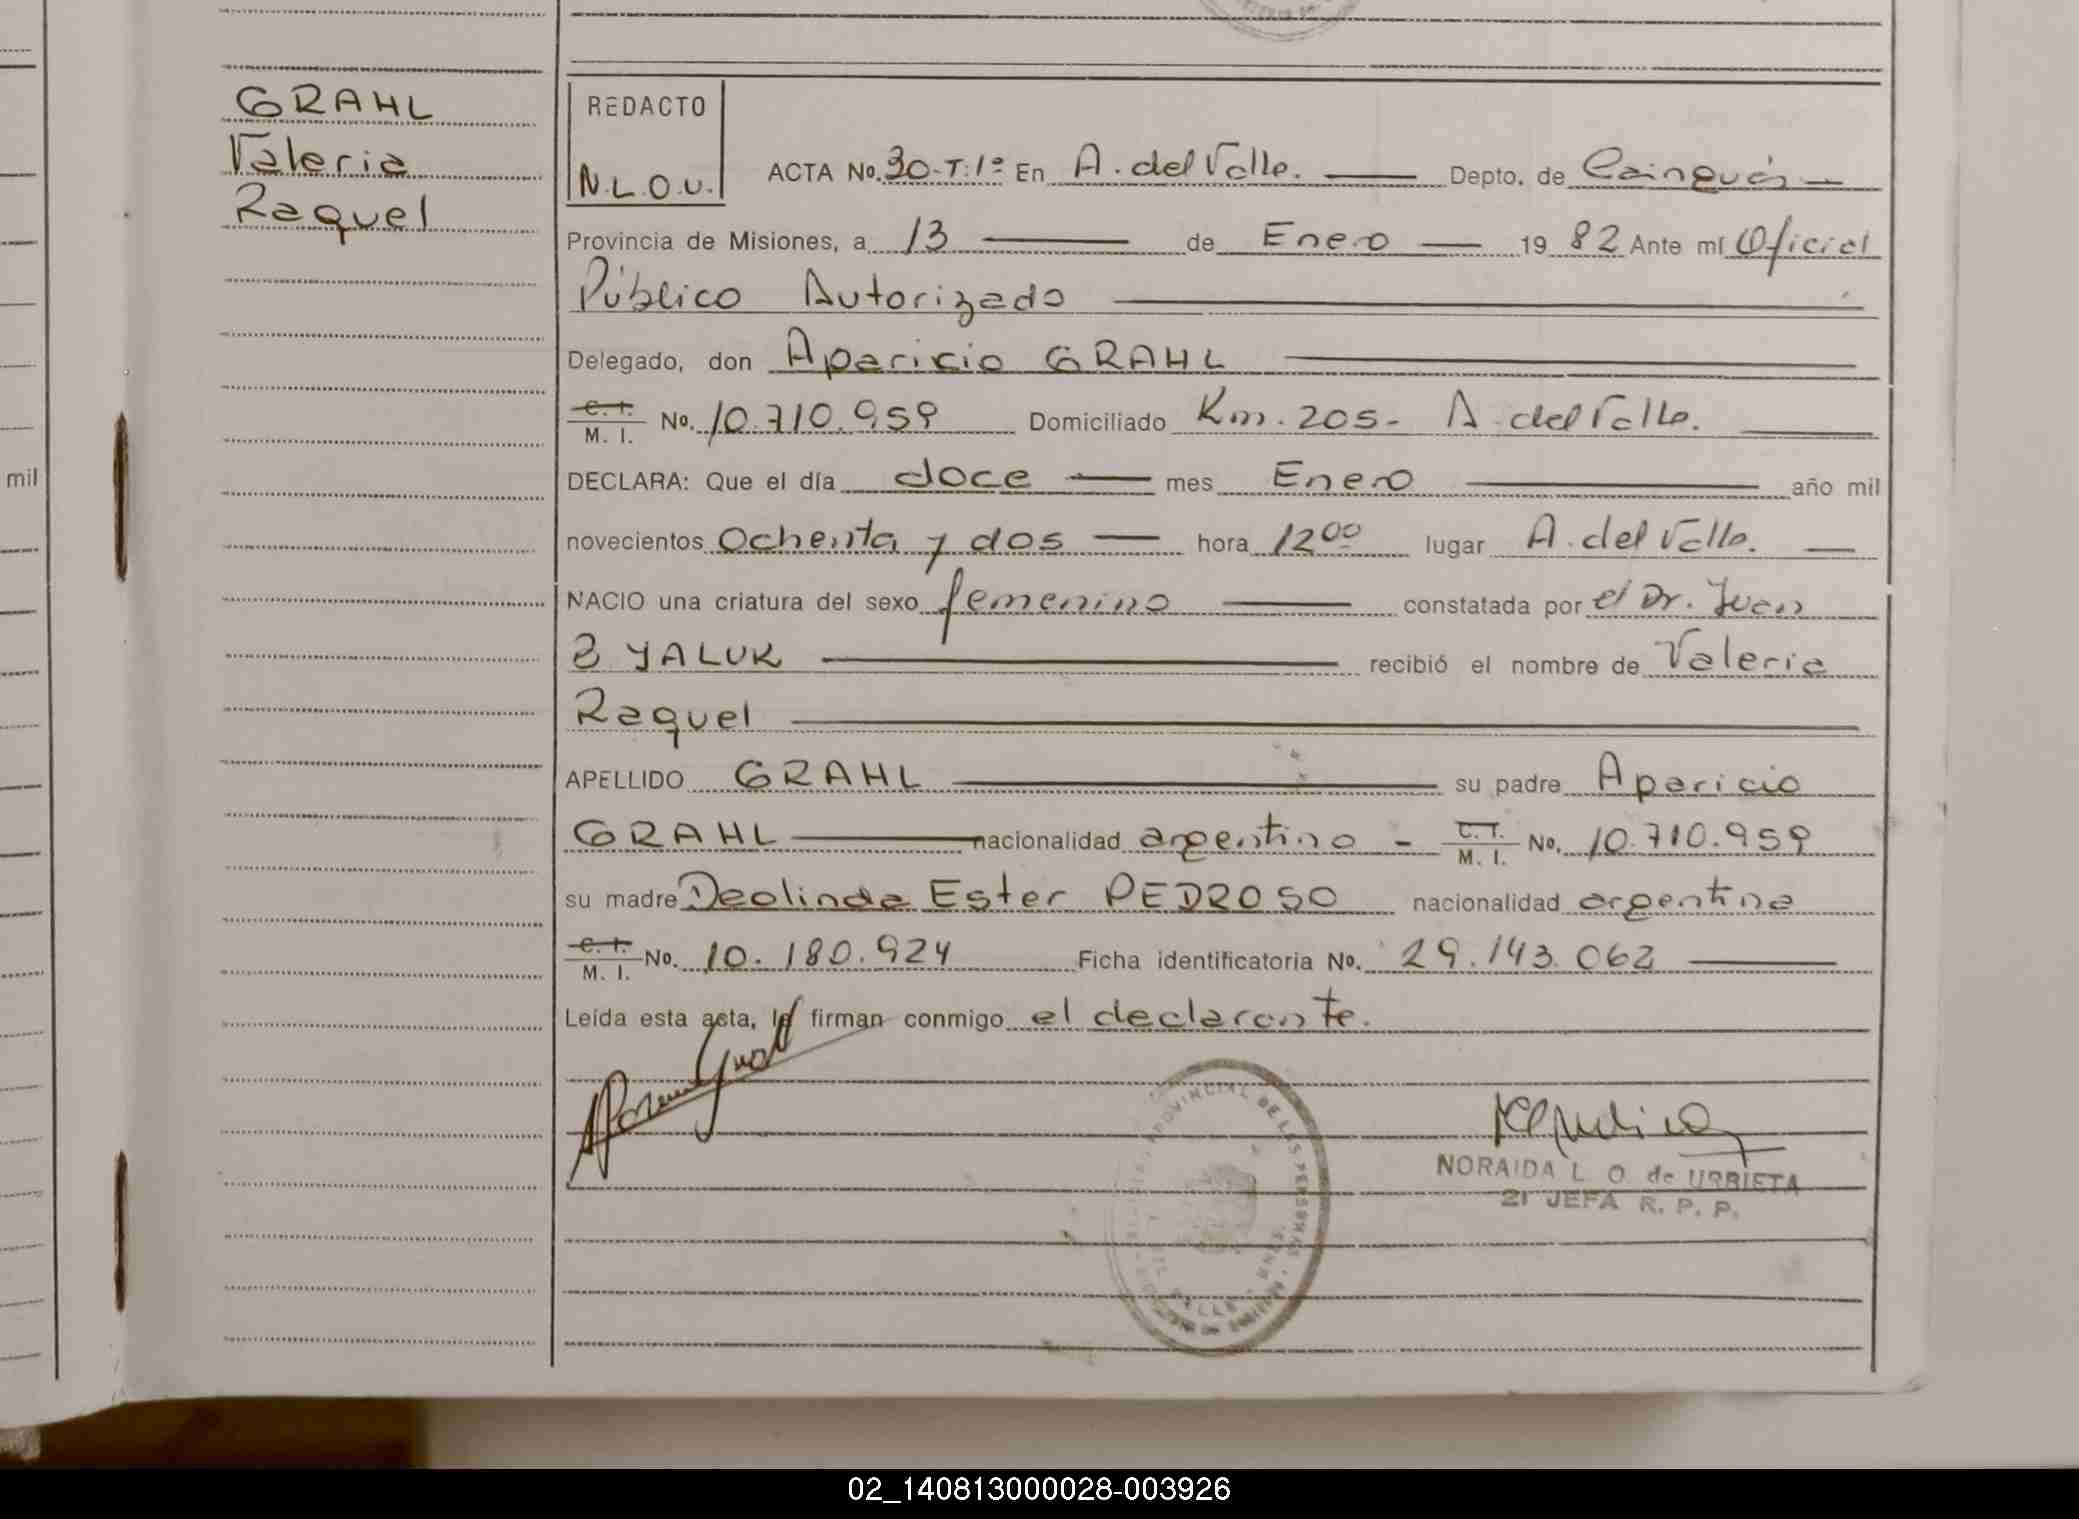 GRAHL
Valeria
Raquel
REDACTO
N.L.O.U.
ACTA No. 30-T:1º En A. del Valle. Depto. de Cainguás
Provincia de Misiones, a 13 de Enero 1982 Ante mí Oficial
Público Autorizado
Delegado, don Aparicio GRAHL
C. I.
M. I. No. 10.710.959 Domiciliado Km. 205- A. del Valle.
DECLARA: Que el día doce mes Enero año mil
novecientos Ochenta y dos hora 12⁰⁰ lugar A. del Valle.
NACIO una criatura del sexo femenino constatada por el Dr. Juan
Z YALUK recibió el nombre de Valeria
Raquel
APELLIDO GRAHL su padre Aparicio
GRAHL nacionalidad argentino - C. I.
M. I. No. 10.710.959
su madre Deolinda Ester PEDROSO nacionalidad argentina
C. I.
M. I. No. 10.180.924 Ficha identificatoria No. 29.143.062
Leída esta acta, la firman conmigo el declarante.
PROVINCIAL DE LAS PERSONAS
NORAIDA L O de URRIETA
21 JEFA R. P. P.
mil
02_140813000028-003926